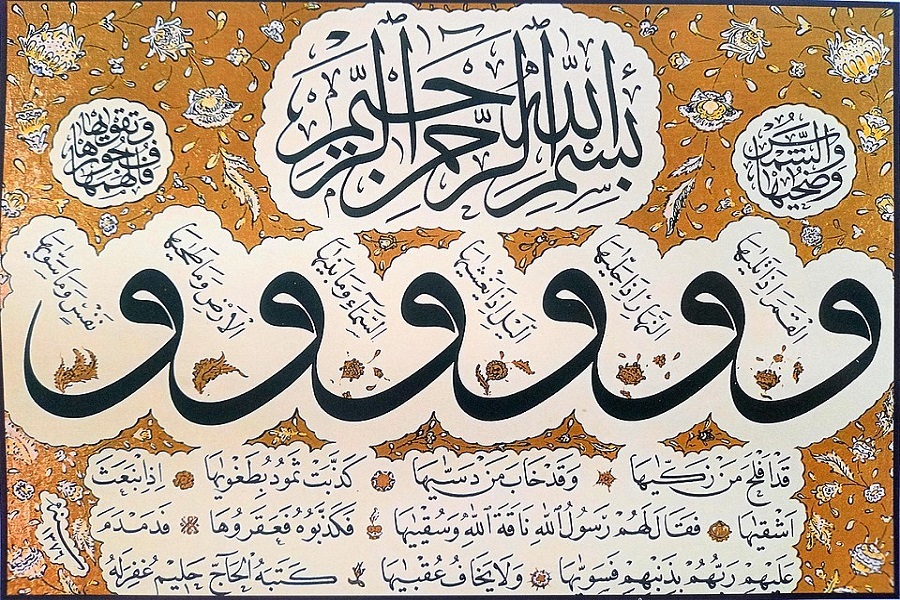 بِسْمِ اللهِ الرَّحْمنِ الرَّحِيمِ
وَالشَّمْسِ وَضُحيهَا
وَالْقَمَرِ اِذَا تَليهَا
وَالنَّهَارِ اِذَا جَلّيهَا
وَالَّيْلِ اِذَا يَغْشيهَا
وَالسَّمَآءِ وَمَا بَنيهَا
وَالْاَرْضِ وَمَا طَحيهَا
وَنَفْسٍ وَمَا سَوّيهَا
فَاَلْهَمَهَا فُجُورَهَا وَتَقْويهَا
قَدْ اَفْلَحَ مَنْ زَكّيهَا وَقَدْ خَابَ مَنْ دَسّيهَا كَذَّبَتْ ثَمُودُ بِطَغْويهَا اِذِ انْبَعَثَ
اَشْقيهَا فَقَالَ لَهُمْ رَسُولُ اللهِ نَاقَةَ اللهِ وَسُقْييهَا فَكَذَّبُوهُ فَعَقَرُوهَا فَدَمْدَمَ
عَلَيْهِمْ رَبُّهُمْ بِذَنْبِهِمْ فَسَوّيهَا وَلَا يَخَافُ عُقْبيهَا كَتَبَهُ الْحَاجّ حَلِيم غُفِرَلَهُ